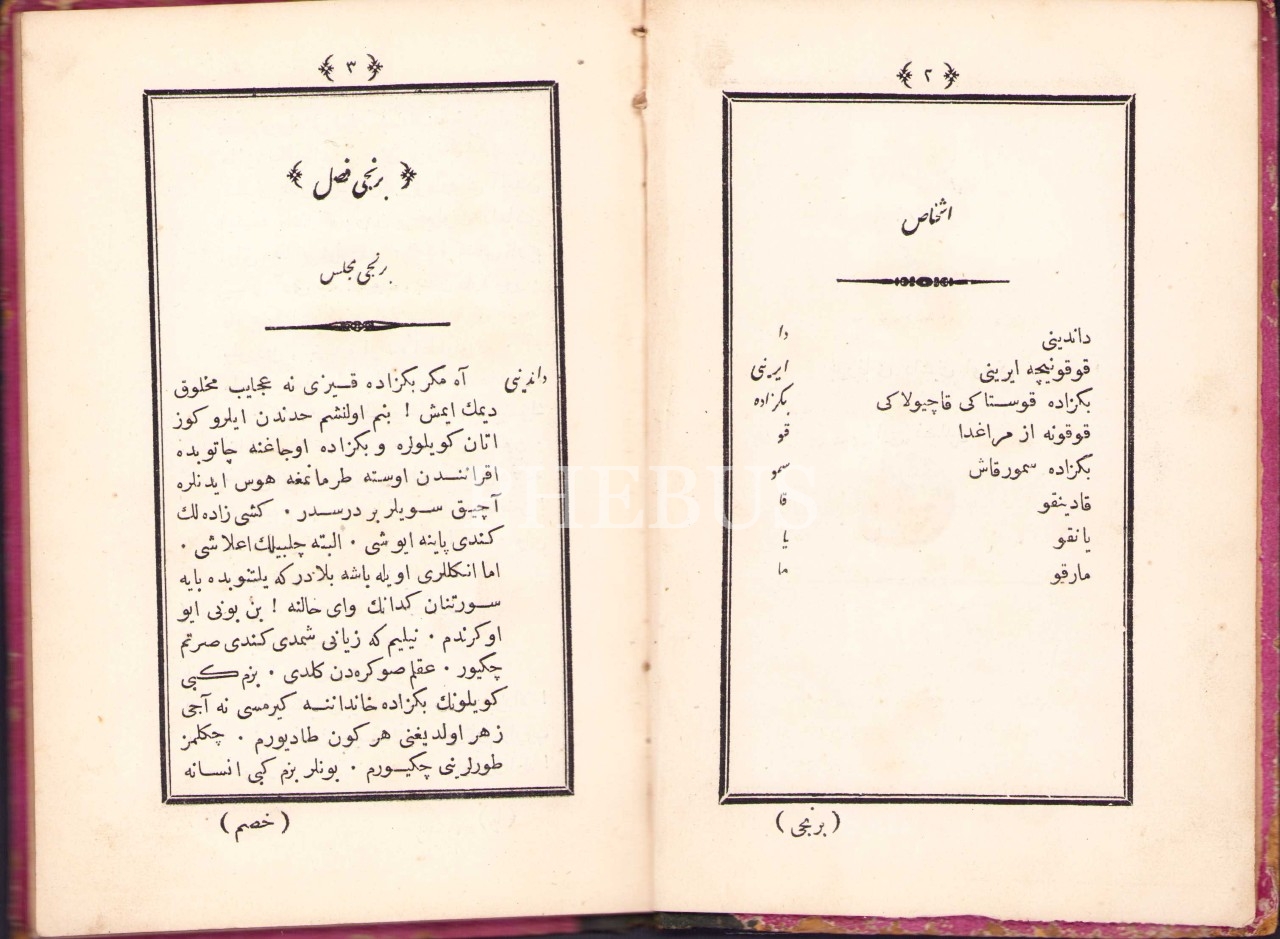 ٢
اشخاص
داندینی دا
قوقونیچه ایرینی ایرینی
بكزاده قوستاكی قاچیولاكی بكزاده
قوقونه از مراغدا قو
بكزاده سمورقاش سمو
قادینقو قا
یانقو یا
مارقو ما
(برنجی)
٣
برنجی فصل
برنجی مجلس
داندینی آه مكر بكزاده قیزی نه عجایب مخلوق
دیمك ایمش ! بنم اولنشم حدندن ایلرو كوز
اتان كویلولره و بكزاده اوجاغنه چاتوبده
اقراننندن اوسته طرمانمغه هوس ایدنلره
آچیق سویلر بر درسدر . كشی زاده لك
كندی پاینه ایو شی . البته چلبیلك اعلا شی .
اما انكللری اویله باشه بلادر كه یلتنوبده بایه
سورتنان كدانك وای حالنه ! بن بونی ایو
اوكرندم . نیلیم كه زیانی شمدی كندی صرتم
چكیور . عقلم صوكره دن كلدی . بزم كبی
كویلونك بكزاده خاندانننه كیرمسی نه آجی
زهر اولدیغنی هر كون طادیورم . چكلمز
طورلرینی چكیورم . بونلر بزم كبی انسانه
(خصم)
PHEBUS